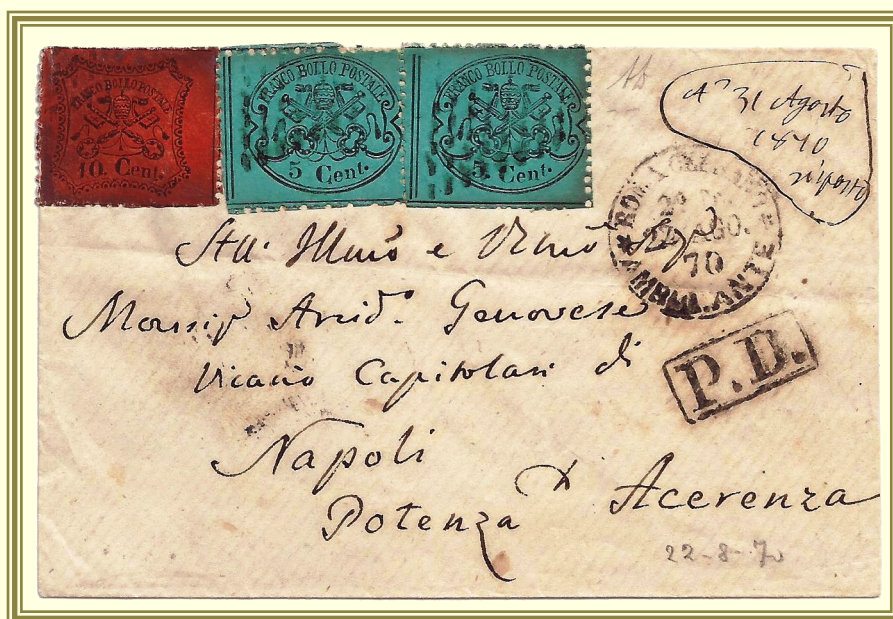 FRANCO BOLLO POSTALE
10. Cent.
FRANCO BOLLO POSTALE
5 Cent.
FRANCO BOLLO POSTALE
5 Cent.
A° 31 Agosto
1870
risposto
ROMA
AGO.
70
AMBULANTE
P.D.
All' Illmo e Rmo Sigr
Monsigr Arcid. Genovese
Vicario Capitolare di
Napoli
Potenza Acerenza
22-8-70